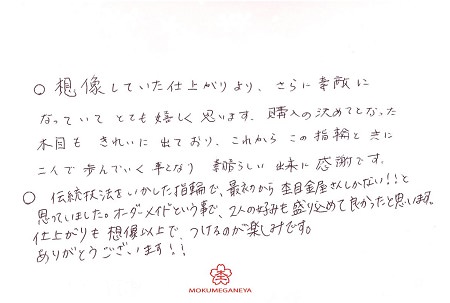 ○ 想像していた仕上がりより、さらに素敵に
なっていて とても嬉しく思います。購入の決めてとなった
木目も きれいに 出ており、これから この指輪と共に
二人で歩んでいく事となり 素晴らしい 出来に 感謝です。
○ 伝統技法をいかした指輪で、最初から 杢目金屋さんしかない!!と
思っていました。オーダーメイドという事で、2人の好みも盛り込めて良かったと思います。
仕上がりも 想像以上で、つけるのが楽しみです。
ありがとうございます!!
MOKUMEGANEYA